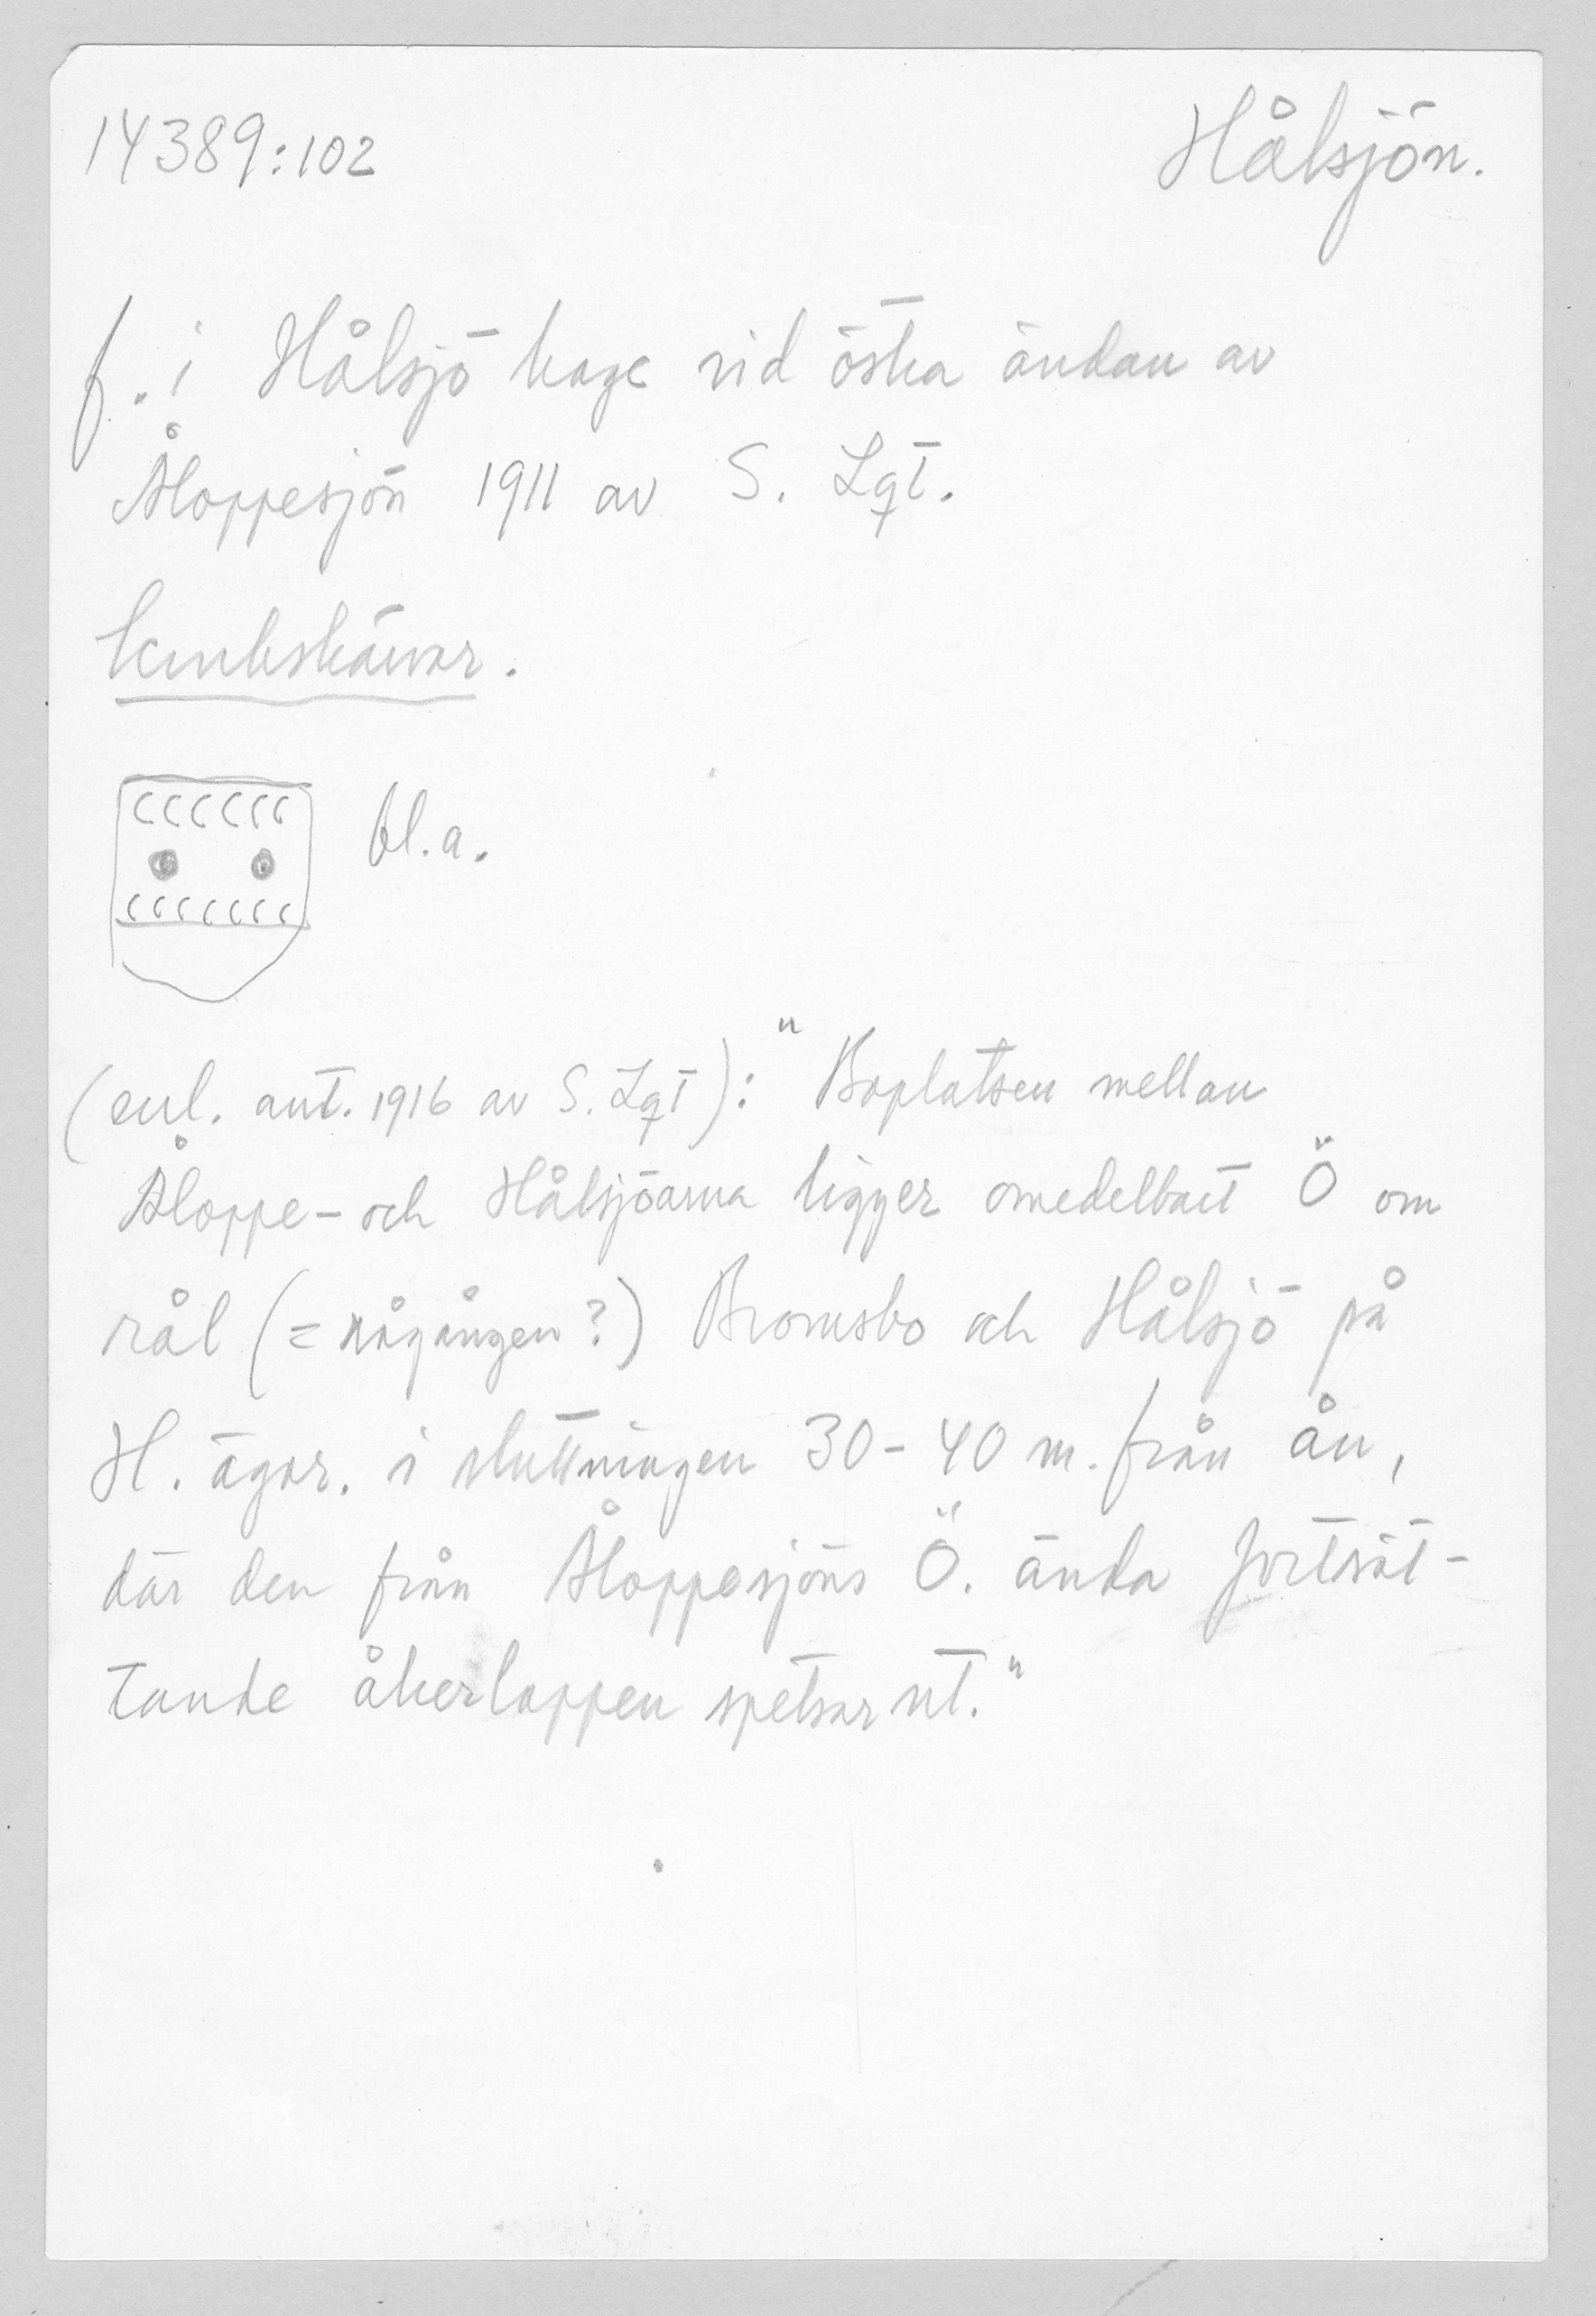 14389:102
Hålsjön.
f. i Hålsjö hage vid östra ändan av
Åloppesjön 1911 av S. Lqt.
krukskärvor.
bl.a.
(enl. ant. 1916 av S. Lqt): "Boplatsen mellan
Åloppe- och Hålsjöarna ligger omedelbart Ö om
rål (= rågången?) Bromsbo och Hålsjö på
H. ägor. i sluttningen 30-40 m. från ån,
där den från Åloppesjöns Ö. ända fortsät-
tande åkerlappen spetsar ut."